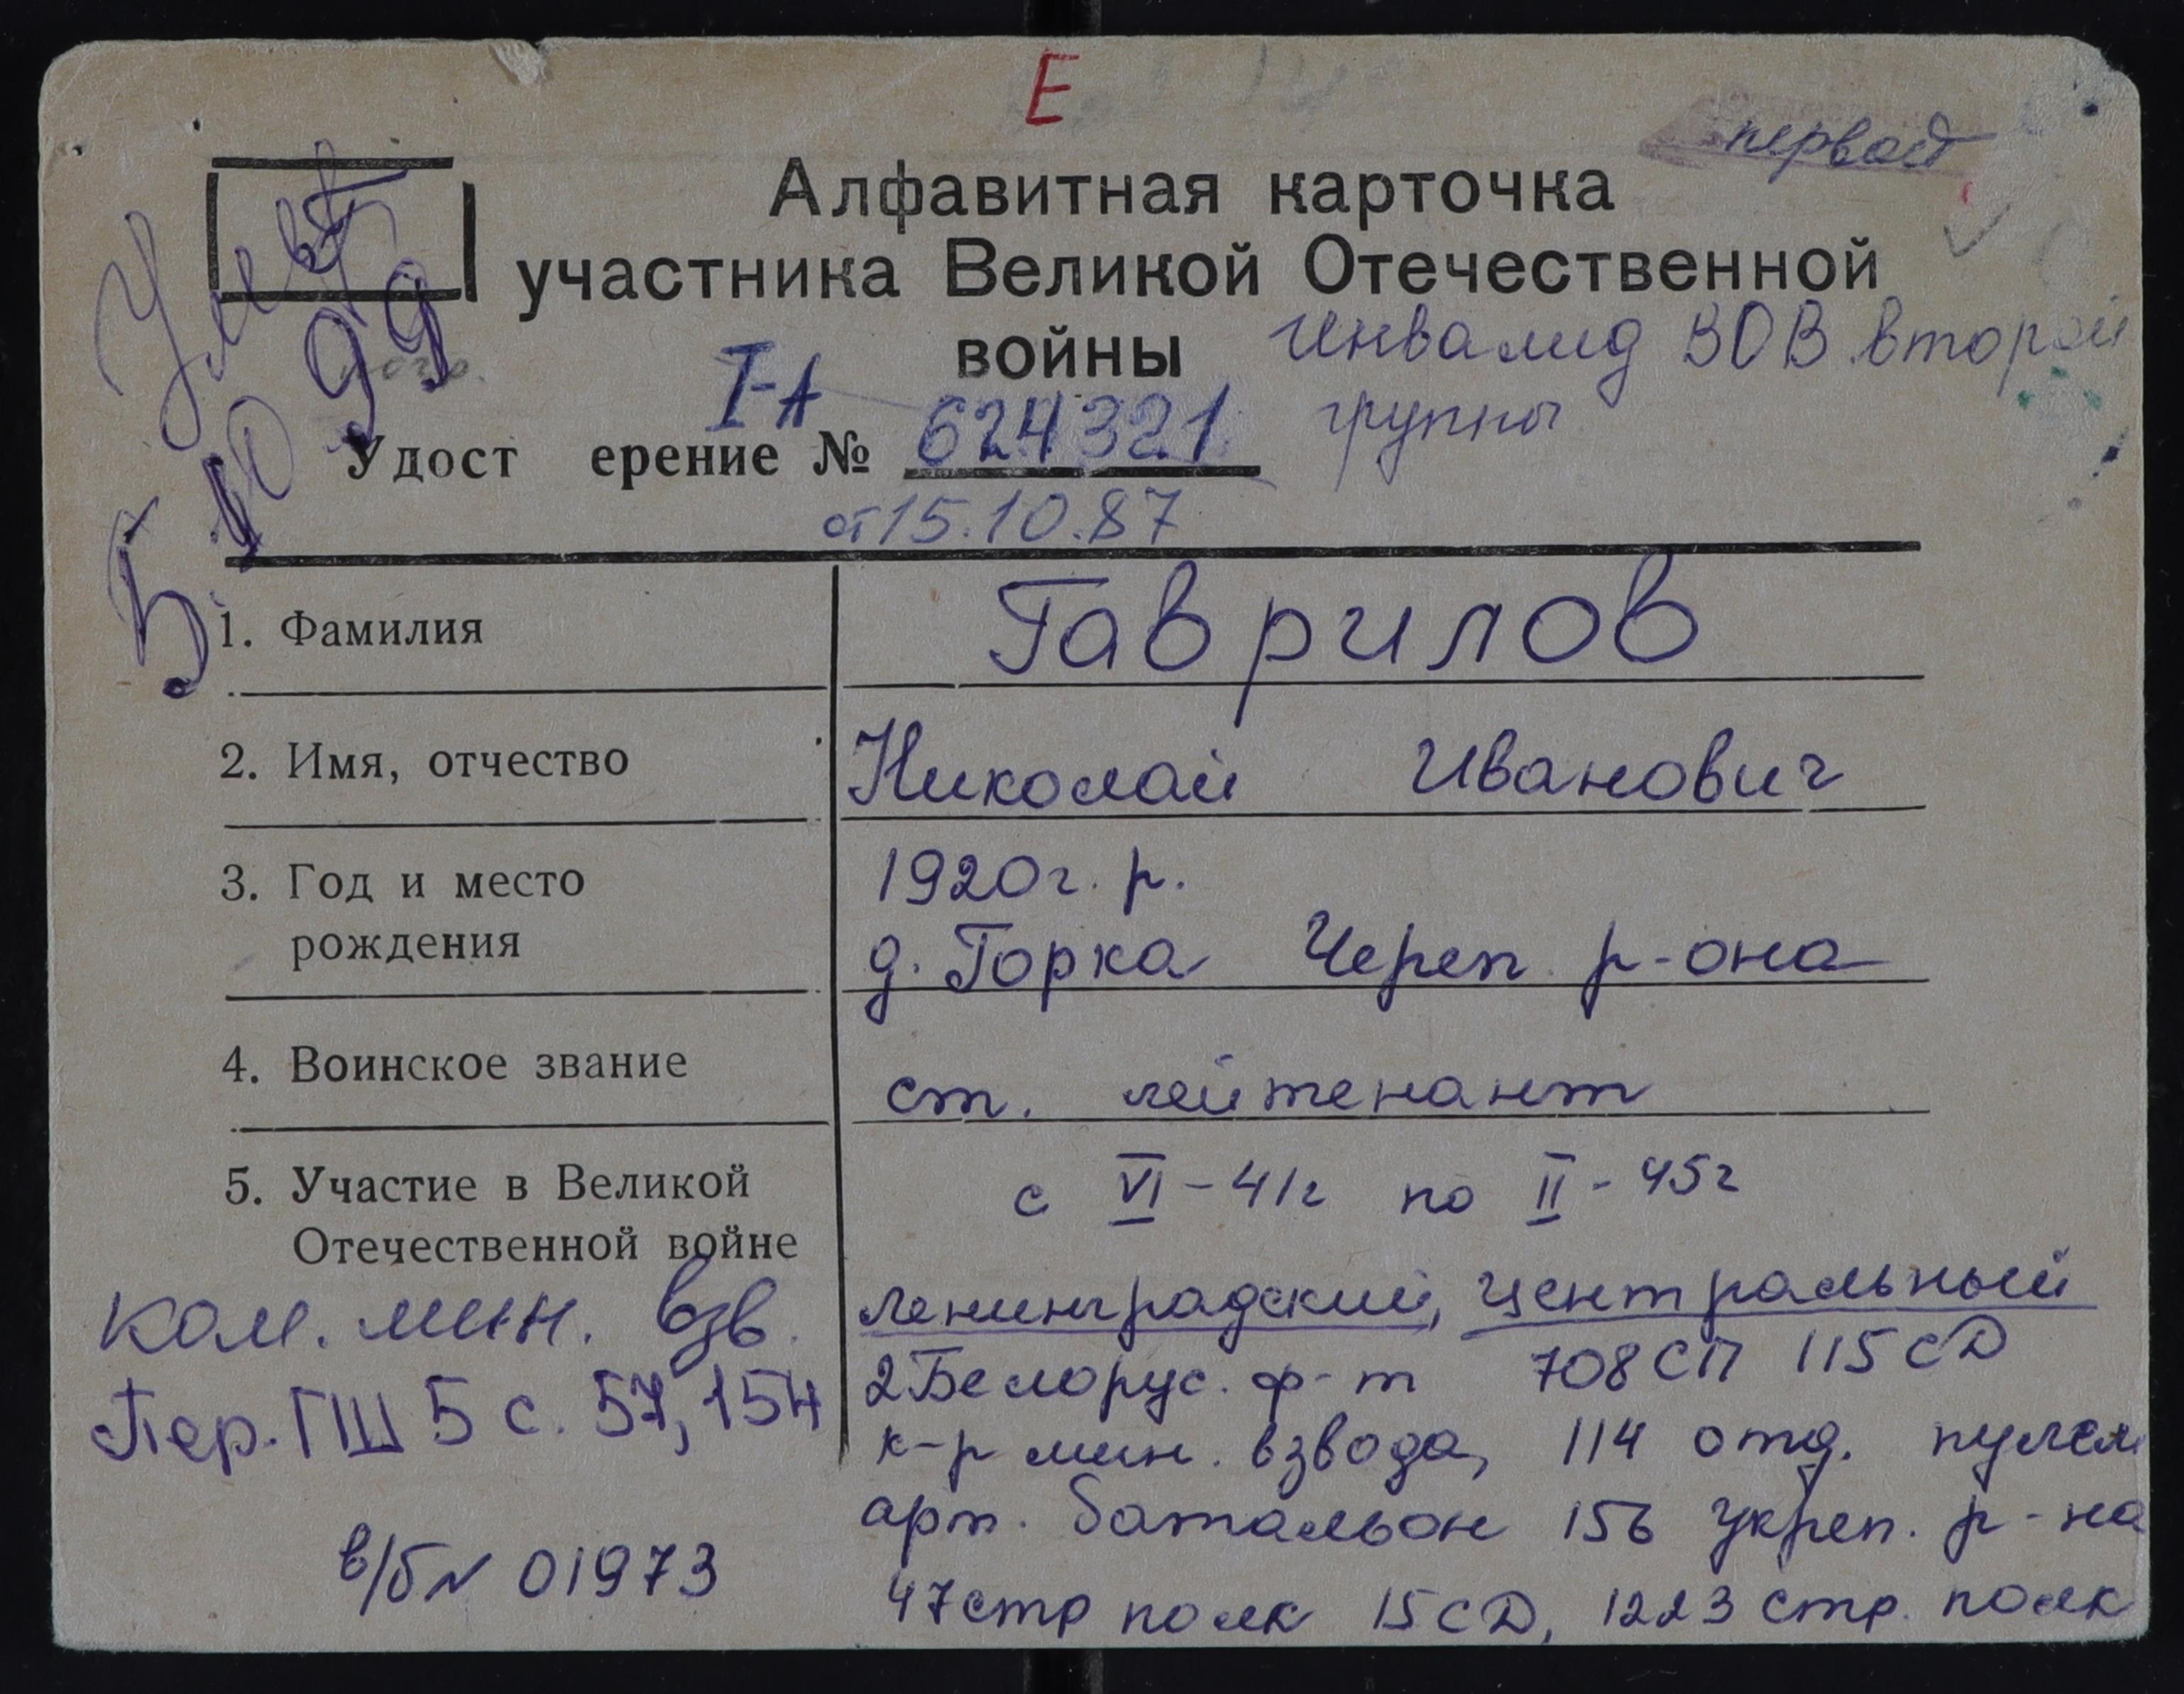 Е
первой
Алфавитная карточка
участника Великой Отечественной
войны
Инвалид ВОВ второй
группы
Умер
5.10 99
I-А
Удост ерение № 624321
от 15.10.87
1. Фамилия Гаврилов
2. Имя, отчество Николай Иванович
3. Год и место 1920г. р.
рождения д. Горка Череп. р-она
4. Воинское звание ст. лейтенант
5. Участие в Великой с VI-41г по II-45г
Отечественной войне
Ленинградский, Центральный
2 Белорус. ф-т 708 СП 115 СД
к-р мин. взвода, 114 отд. пулем
арт. батальон 156 укреп. р-на
47 стр полк 15 СД, 1223 стр. полк
ком. мин. взв.
Пер. ГШ 5 с. 57, 154
в/б N 01973